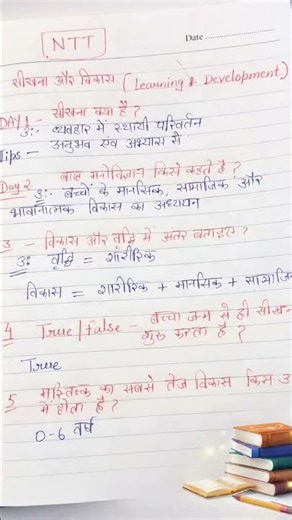 NTT
Date
सीखना और विकास (Learning & Development)
DAY 1 - सीखना क्या है ?
उ:- व्यवहार में स्थायी परिवर्तन
Tips - अनुभव एंव अभ्यास से
Day 2 बाल मनोविज्ञान किसे कहते है ?
उ:- बच्चों के मानसिक, सामाजिक और
भावनात्मक विकास का अध्ययन
3 - विकास और वृद्धि में अंतर बताइए ?
उ: वृद्धि = शारीरिक
विकास = शारीरिक + मानसिक + सामाजि
4 True/false - बच्चा जन्म से ही सीखन
शुरू करता है ?
True
5 मस्तिष्क का सबसे तेज विकास किस उ
में होता है ?
0-6 वर्ष